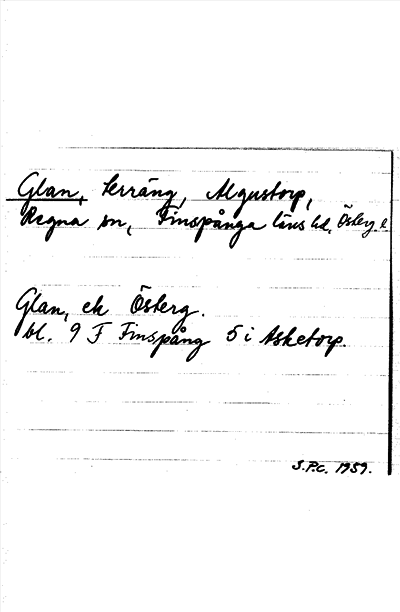 Glan, terräng, Algustorp,
Regna sn, Finspånga läns hd, Österg l
Glan, ek Österg.
bl. 9 F Finspång 5 i Asketorp.
S.P.c. 1959.